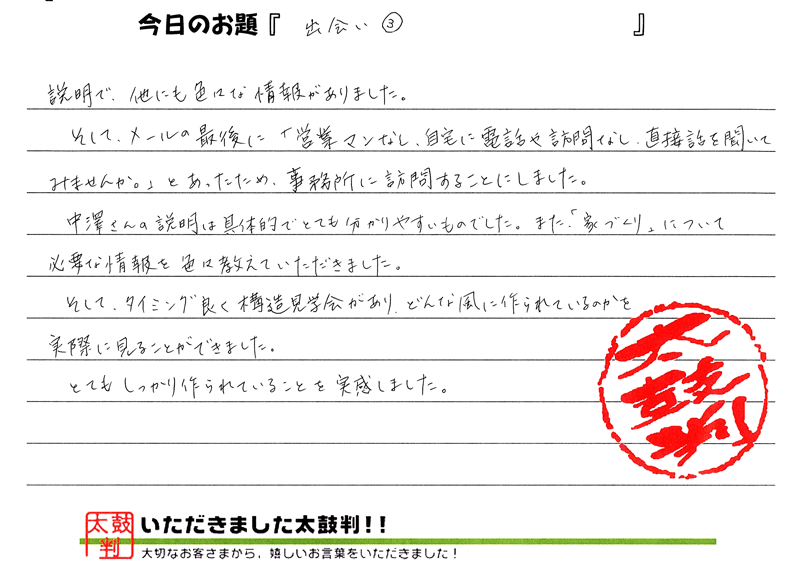 今日のお題『 出会い③ 』
説明で、他にも色々な情報がありました。
そして、メールの最後に「営業マンなし、自宅に電話や訪問なし、直接話を聞いて
みませんか。」とあったため、事務所に訪問することにしました。
中澤さんの説明は具体的でとても分かりやすいものでした。また、「家づくり」について
必要な情報を色々教えていただきました。
そして、タイミング良く構造見学会があり、どんな風に作られているのかを
実際に見ることができました。
とてもしっかり作られていることを実感しました。
太鼓判
太鼓判
いただきました太鼓判!!
大切なお客さまから、嬉しいお言葉をいただきました!